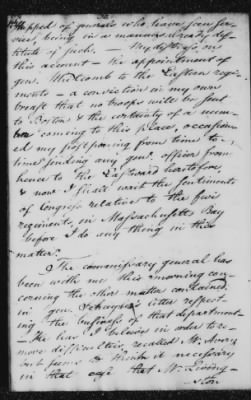 stripped of generals who leave your ser-
vice, being in a manner already des-
titute of such. — My distress on
this account — the appointment of
gen. Whitcomb to the Eastern regi-
ments — a conviction in my own
breast that no troops will be sent
to Boston & the certainty of a num-
ber coming to this place, occasion-
ed my postponing from time to
time sending any gen. officer from
hence to the Eastward heretofore,
& now I shall wait the sentiments
of Congress relative to the five
regiments in Massachusetts Bay
before I do any thing in this
matter.
The commissary general has
been with me this morning con-
cerning the other matter contained
in gen. Schuyler's letter respect-
ing the business of that department.
— He has I believe in order to re-
move difficulties, recalled Mr. Avery
but seems to think it necessary
in that case that Mr. Living-
ston